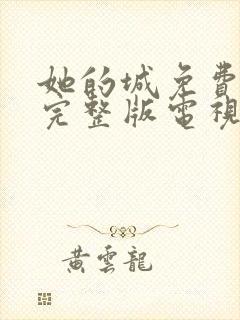 她的城免費
完整版電視
黃雲龍